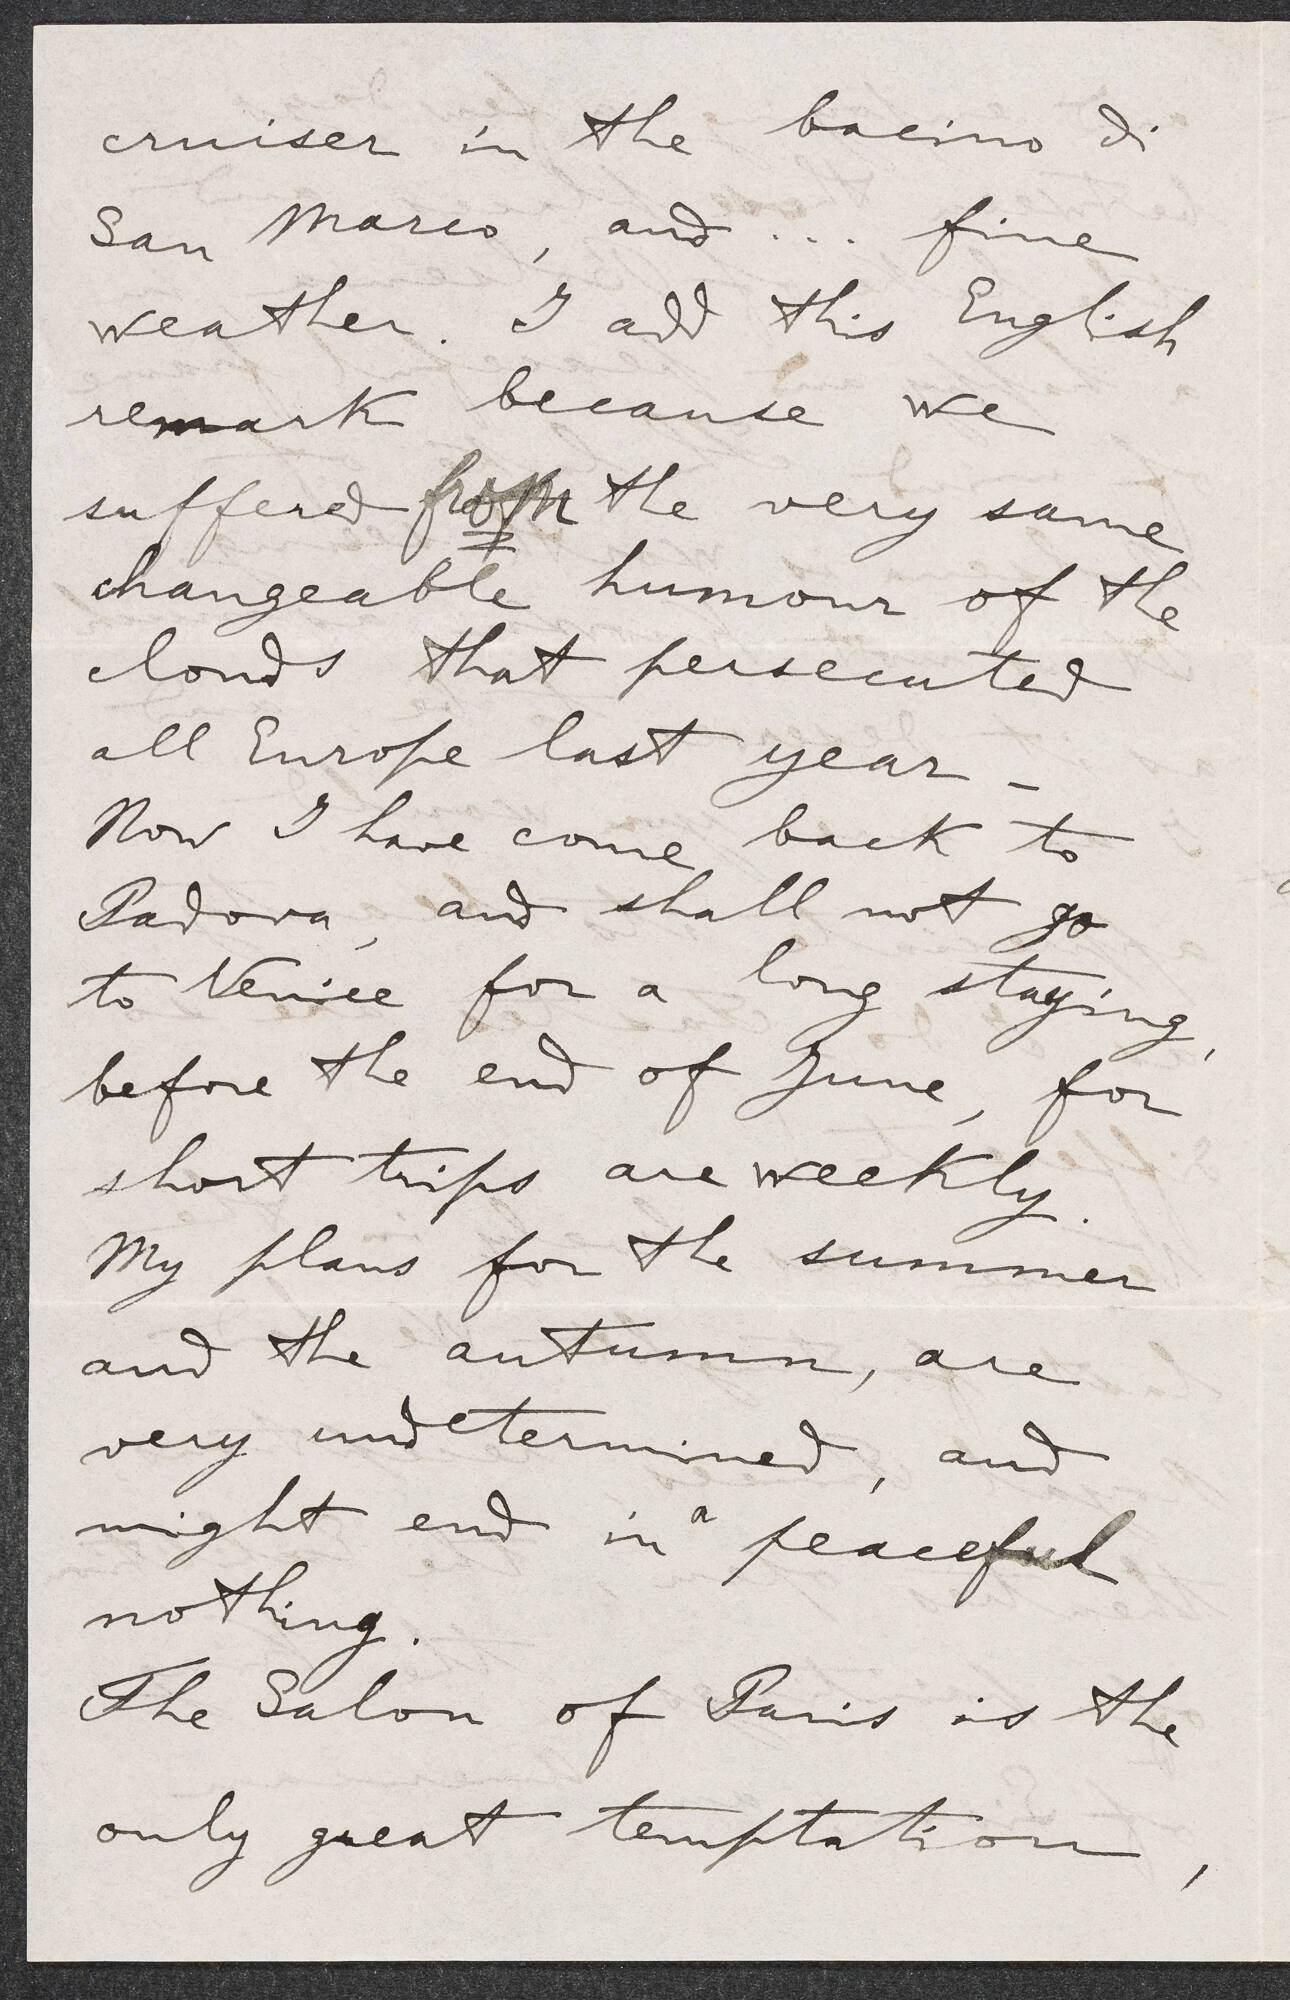 cruiser in the bacino di
San Marco, and ... fine
weather. I add this English
remark because we
suffered from the very same
changeable humour of the
clouds that persecuted
all Europe last year _
Now I have come back to
Padova, and shall not go
to Venice for a long staying,
before the end of June, for
short trips are weekly.
My plans for the summer
and the autumn, are
very undetermined, and
might end in a peaceful
nothing.
The Salon of Paris is the
only great temptation,